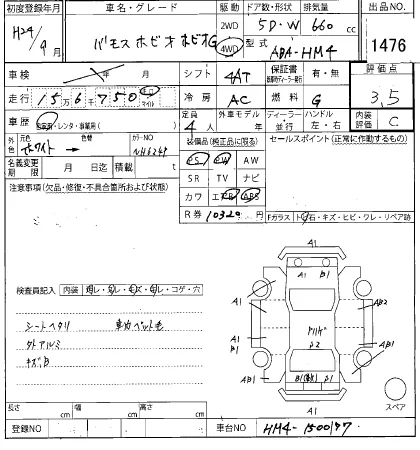 初度登録年月 車名・グレード 駆動 ドア数・形状 排気量 出品NO
H24/9月 バモス ホビオ 2WD 5D・W 660cc
4WD 型式 ABA-HM4 1476
車検 年 月 シフト 4AT 保証書 有・無 評価点
走行 15万6千750 km マイル 冷房 AC 燃料 G 3,5
車歴 自家用・レンタ・事業用( ) 定員 4人 外車モデル 年 ディーラー 並行 ハンドル 左・右 内装評価 C
外色 元色 ホワイト 色替 カラーNO NH624P 装備品(純正品に限る) セールスポイント(正常に作動するもの)
名義変更期限 月 日迄 積載 t PS PW AW
注意事項(欠品・修復・不具合箇所および状態) SR TV ナビ
カワ エアB ABS
R券 10320 円 Fガラス トビ石・キズ・ヒビ・ワレ・リペア跡
検査員記入 内装 汚レ・切レ・キズ・コゲ・穴
シートヘタリ 車内ペット毛
外アルミ
キズ凹
A1
A1 B1
A1 AB2
A1 B1 B2 AB1
A1
スペア
長さ cm 幅 cm 高さ cm
登録NO 車台NO HM4-1500197